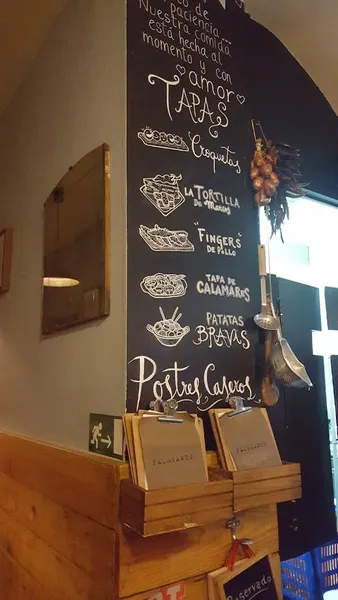 de
paciencia...
Nuestra comida
está hecha al
momento y con
amor
TAPAS
Croquetas
LA TORTILLA
"FINGERS"
DE POLLO
TAPA DE
CALAMARES
PATATAS
BRAVAS
Postres Caseros
Reservado